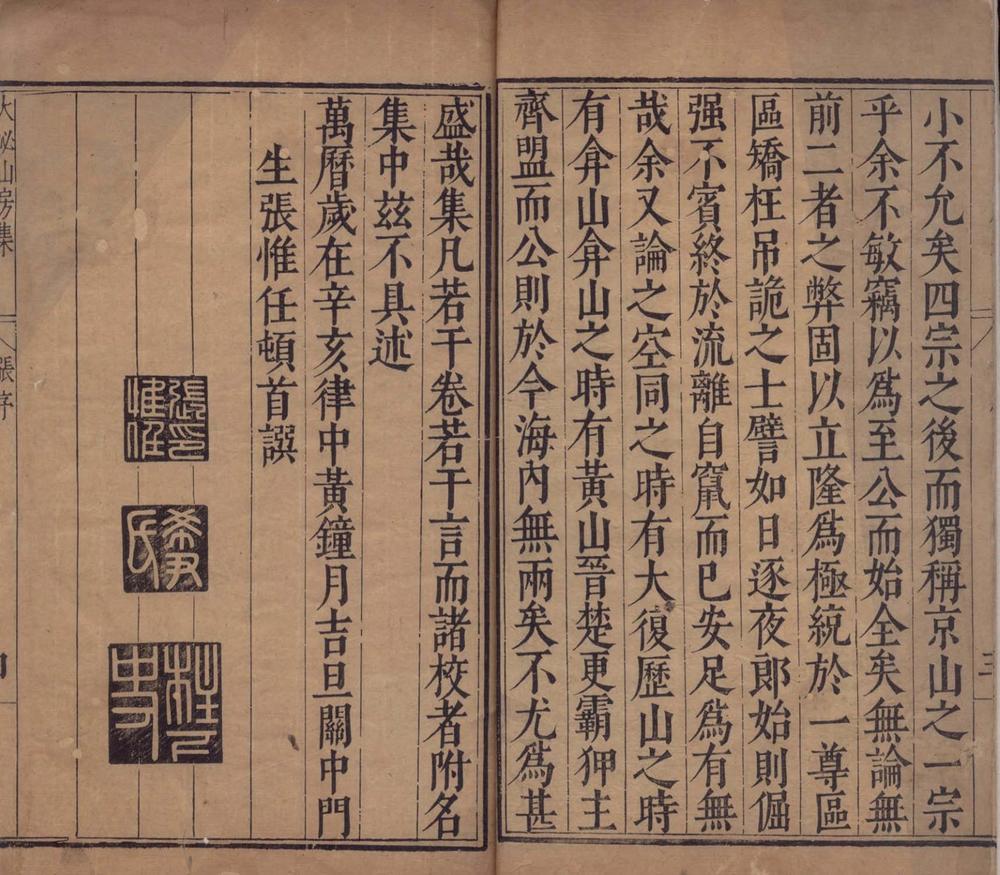 小不允矣四宗之後而獨稱京山之一宗
乎余不敏竊以爲至公而始全矣無論無
前二者之弊固以立隆爲極統於一尊區
區矯枉吊詭之士譬如日逐夜郎始則倔
强不賓終於流離自竄而已安足爲有無
哉余又論之空同之時有大復歷山之時
有弇山弇山之時有黃山晉楚更霸狎主
齊盟而公則於今海內無兩矣不尤爲甚
三
盛哉集凡若干卷若干言而諸校者附名
集中茲不具述
萬曆歲在辛亥律中黃鐘月吉旦關中門
生張惟任頓首譔
張惟任印
希尹氏
柱史
大泌山房集
張序